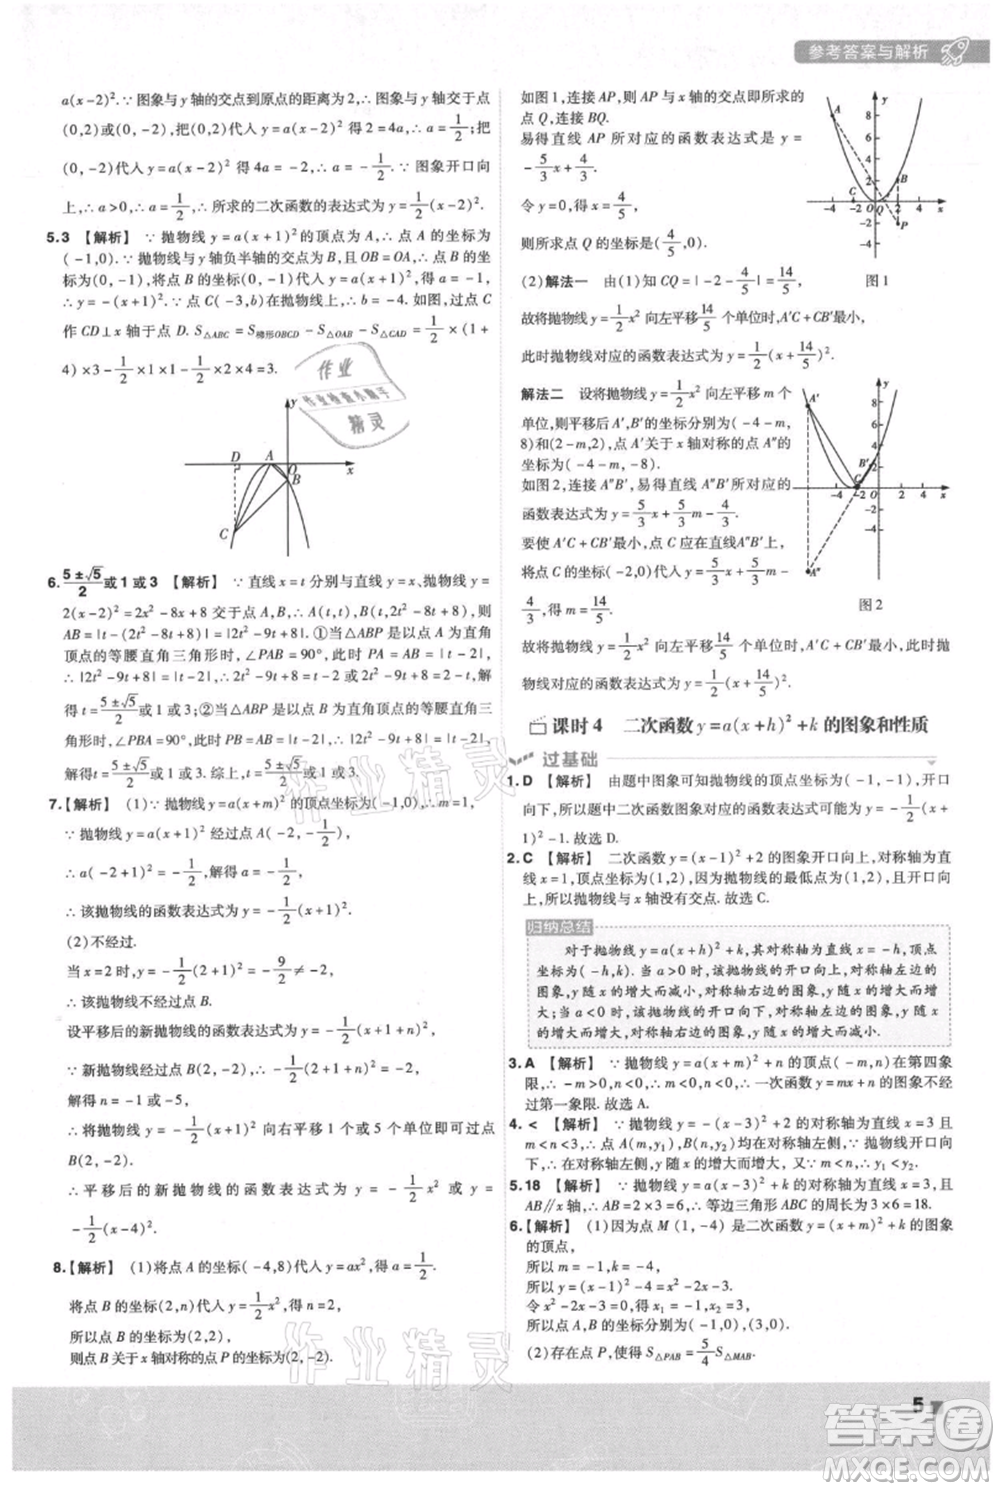 参考答案与解析
a(x-2)². ∵图象与 y 轴的交点到原点的距离为 2,∴图象与 y 轴交于点
(0,2)或(0,-2),把(0,2)代入 y=a(x-2)² 得 2=4a,∴a=1/2;把
(0,-2)代入 y=a(x-2)² 得 4a=-2,∴a=-1/2. ∵图象开口向
上,∴a>0,∴a=1/2,∴所求的二次函数的表达式为 y=1/2(x-2)².
5.3 【解析】 ∵抛物线 y=a(x+1)² 的顶点为 A,∴点 A 的坐标为
(-1,0). ∵抛物线与 y 轴负半轴的交点为 B,且 OB=OA,∴点 B 的坐
标为(0,-1). 将点 B 的坐标代入抛物线的表达式,可得 a=-1,
∴y=-(x+1)². ∵点 C(-3,b)在抛物线上,∴b=-4. 如图,过点 C
作 CD⊥x 轴于点 D. S△ABC=S梯形OBCD-S△OAB-S△CAD=1/2×(1+
4)×3-1/2×1×1-1/2×2×4=3.
y
D A O x
B
C
6. (5±√5)/2 或 1 或 3 【解析】 ∵直线 x=t 分别与直线 y=x、抛物线 y=
2(x-2)²=2x²-8x+8 交于点 A,B,∴A(t,t),B(t,2t²-8t+8),则
AB=|t-(2t²-8t+8)|=|2t²-9t+8|. ①当△ABP 是以点 A 为直角
顶点的等腰直角三角形时,∠PAB=90°,此时 PA=AB=|t-2|,
∴|2t²-9t+8|=|t-2|,∴2t²-9t+8=t-2 或 2t²-9t+8=2-t,解
得 t=(5±√5)/2 或 1 或 3;②当△ABP 是以点 B 为直角顶点的等腰直角三角
形时,∠PBA=90°,此时 PB=AB=|t-2|,∴|2t²-9t+8|=|t-2|,
解得 t=(5±√5)/2 或 1 或 3. 综上,t=(5±√5)/2 或 1 或 3.
7.【解析】 (1)∵抛物线 y=a(x+m)² 的顶点坐标为(-1,0),∴m=1,
∵抛物线 y=a(x+1)² 经过点 A(-2,-1/2),
∴a(-2+1)²=-1/2,解得 a=-1/2.
∴该抛物线的函数表达式为 y=-1/2(x+1)².
(2)不经过.
∵当 x=2 时,y=-1/2(2+1)²=-9/2≠-2,
∴该抛物线不经过点 B.
设平移后的新抛物线的函数表达式为 y=-1/2(x+1-b)².
∵新抛物线经过点 B(2,-2),∴-2=-1/2(2+1-b)²,
解得 b=1 或 5,
∴将抛物线 y=-1/2(x+1)² 向右平移 1 个或 5 个单位即可过点
B(2,-2).
∴平移后的新抛物线的函数表达式为 y=-1/2x² 或 y=
-1/2(x-4)².
8.【解析】 (1)将点 A 的坐标(-4,8)代入 y=ax² 可得 a=1/2,
将点 B 的坐标(2,n)代入 y=1/2x²,可得 n=2,
所以点 B 的坐标为(2,2),
则点 B 关于 x 轴对称的点 P 的坐标为(2,-2).
如图 1,连接 AP,则 AP 与 x 轴的交点即为所求的
点 Q,连接 BQ.
易得直线 AP 所对应的函数表达式是 y=
-5/3x+4/3.
令 y=0,得 x=4/5.
即所求点 Q 的坐标是(4/5,0).
图 1
(2)解法一 由(1)知 CQ=|-2-4/5|=14/5,
故将抛物线 y=1/2x² 向左平移 14/5 个单位时,A'C+CB'最小,
此时抛物线对应的函数表达式为 y=1/2(x+14/5)².
解法二 设将抛物线 y=1/2x² 向左平移 m 个
单位,则平移后 A',B'的坐标分别为(-4-m,
8)和(2-m,2),点 A'关于 x 轴对称的点 A″
的坐标为(-4-m,-8).
如图 2,连接 A″B',易得直线 A″B'所对应的
函数表达式为 y=5/3x+5/3m-4/3.
要使 A'C+CB'最小,点 C 应在直线 A″B'上,
将点 C 的坐标(-2,0)代入 y=5/3x+5/3m-4/3,
得 m=14/5.
图 2
故将抛物线 y=1/2x² 向左平移 14/5 个单位时,A'C+CB'最小,此时抛
物线对应的函数表达式为 y=1/2(x+14/5)².
课时 4 二次函数 y=a(x+h)²+k 的图象和性质
过基础
1.D 【解析】 由题中图象可知抛物线的顶点坐标为(-1,-1),开口
向下,所以题中二次函数图象对应的函数表达式可能为 y=-1/2(x+
1)²-1. 故选 D.
2.C 【解析】 二次函数 y=(x-1)²+2 的图象开口向上,对称轴为直
线 x=1,顶点坐标为(1,2),因为抛物线的最低点为(1,2),所以
抛物线与 x 轴没有交点. 故选 C.
归纳总结
对于抛物线 y=a(x+h)²+k,其对称轴为直线 x=-h,顶点
坐标为(-h,k). 当 a>0 时,该抛物线的开口向上,对称轴左边的
图象,y 随 x 的增大而减小,对称轴右边的图象,y 随 x 的增大而增
大;当 a<0 时,该抛物线的开口向下,对称轴左边的图象,y 随 x 的
增大而增大,对称轴右边的图象,y 随 x 的增大而减小.
3.A 【解析】 ∵抛物线 y=(x+m)²+n 的顶点(-m,n)在第四象
限,∴-m>0,n<0,∴m<0,∴一次函数 y=mx+n 的图象不经
过第一象限. 故选 A.
4.< 【解析】 ∵抛物线 y=-(x-3)²+2 的对称轴为直线 x=3 且
m<n<3,∴点 A(m,y₁),B(n,y₂)均在对称轴左侧,∵抛物线开口向
下,∴在对称轴左侧,y 随 x 的增大而增大,∴y₁<y₂.
5.18 【解析】 ∵抛物线 y=a(x-3)²+k 的对称轴为直线 x=3,且
AB∥x 轴,∴AB=2×3=6,∴等边三角形 ABC 的周长为 3×6=18.
6.【解析】 (1)因为点 M(1,-4)是二次函数 y=(x+m)²+k 的图象
的顶点,
所以 m=-1,k=-4.
所以 y=(x-1)²-4=x²-2x-3.
令 x²-2x-3=0,解得 x₁=-1,x₂=3,
所以点 A,B 的坐标分别为(-1,0),(3,0).
(2)存在点 P,使 S△PAB=5/4S△MAB.
5
作业精灵
作业检查小助手
答案圈
MXQE.COM